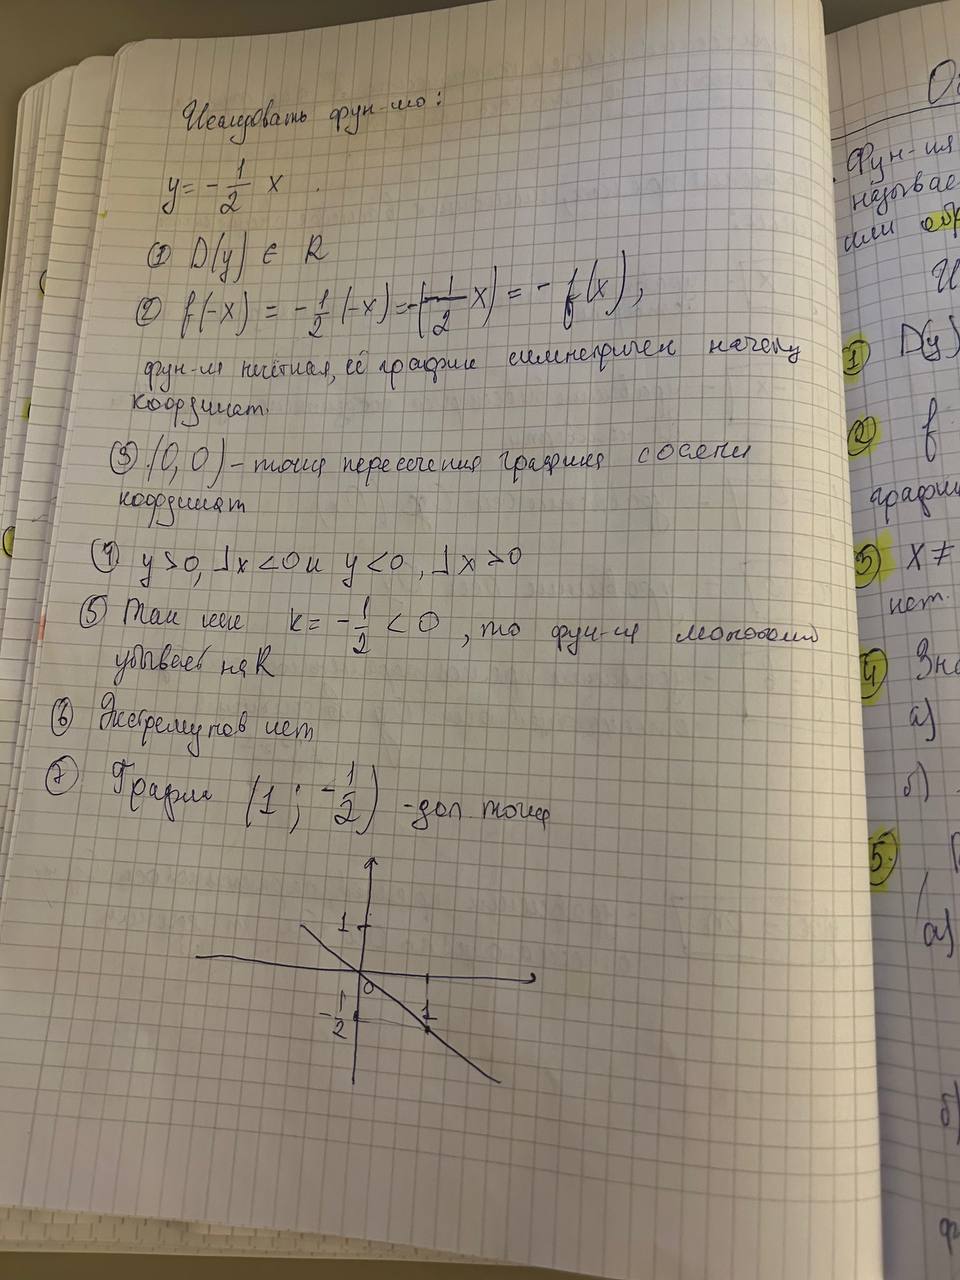 Исследовать фун-ию:
y = - 1/2 x .
① D(y) ∈ R
② f(-x) = - 1/2 (-x) = -(- 1/2 x) = - f(x),
фун-ия нечётная, её график симметричен началу
координат.
③ (0, 0) - точка пересечения графика с осями
координат
④ y > 0, ⅃ x < 0 и y < 0, ⅃ x > 0
⑤ Так как k = - 1/2 < 0, то фун-ия монотонно
убывает на R
⑥ Экстремумов нет
⑦ График (1; - 1/2) - доп. точка
1
0
- 1/2
1
Фун-ия
называе
или обр
① D(y)
② f
график
③ x ≠
нет.
④ Зна
а)
б)
⑤
а)
б)